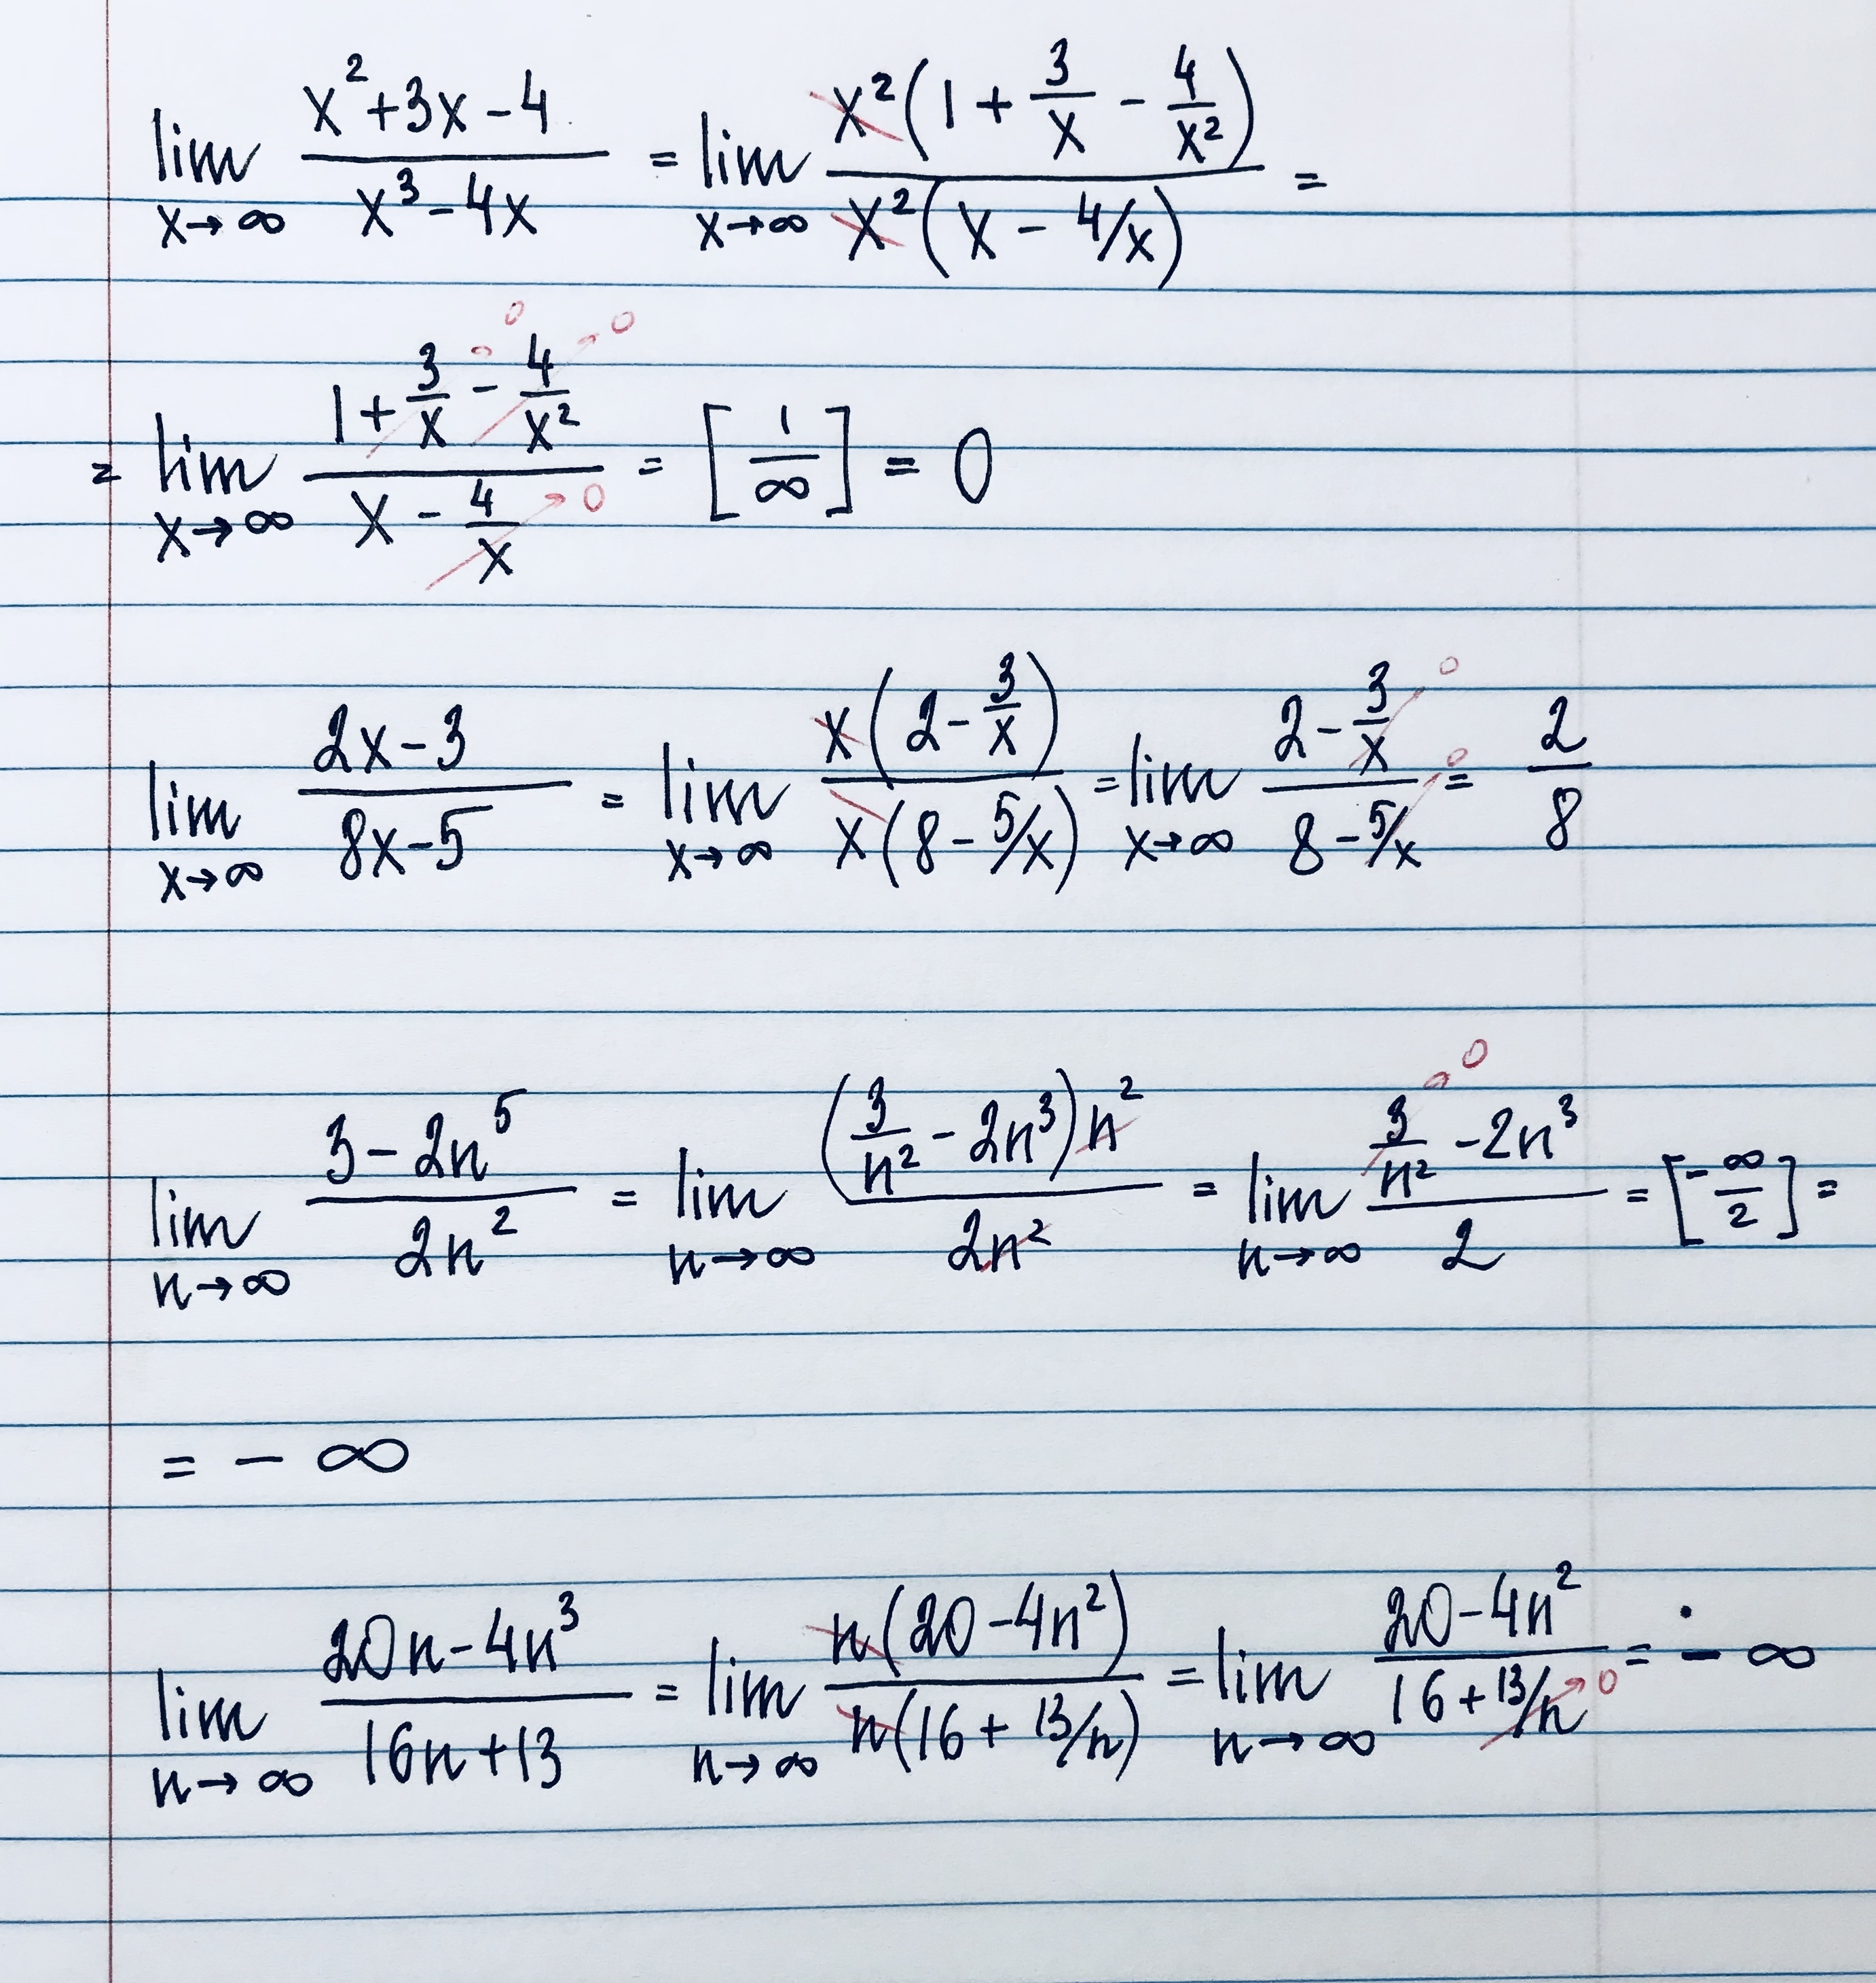 lim x→∞ (x²+3x-4)/(x³-4x) = lim x→∞ x²(1+3/x-4/x²)/x²(x-4/x) =
= lim x→∞ (1+3/x-4/x²)/(x-4/x) = [1/∞] = 0
lim x→∞ (2x-3)/(8x-5) = lim x→∞ x(2-3/x)/x(8-5/x) = lim x→∞ (2-3/x)/(8-5/x) = 2/8
lim n→∞ (3-2n⁵)/2n² = lim n→∞ (3/n²-2n³)n²/2n² = lim n→∞ (3/n²-2n³)/2 = [-∞/2] =
= -∞
lim n→∞ (20n-4n³)/(16n+13) = lim n→∞ n(20-4n²)/n(16+13/n) = lim n→∞ (20-4n²)/(16+13/n) = -∞